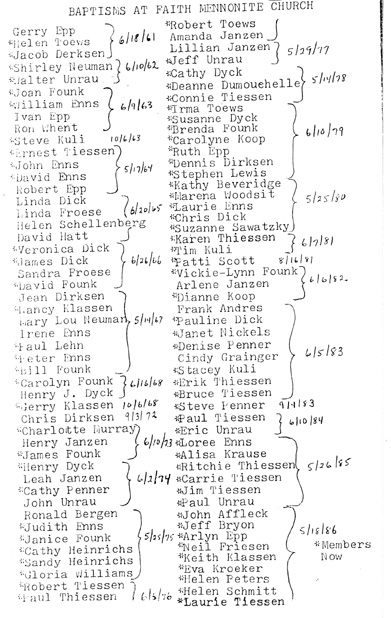 BAPTISMS AT FAITH MENNONITE CHURCH
Gerry Epp
*Helen Toews
*Jacob Derksen
6/18/61
*Shirley Neuman
*Walter Unrau
6/10/62
*Joan Founk
*William Enns
Ivan Epp
Ron Whent
6/9/63
*Steve Kuli 10/6/63
*Ernest Tiessen
*John Enns
*David Enns
Robert Epp
5/17/64
Linda Dick
Linda Froese
Helen Schellenberg
David Hatt
6/20/65
*Veronica Dick
*James Dick
Sandra Froese
*David Founk
6/26/66
Jean Dirksen
*Nancy Klassen
*Mary Lou Neuman
Irene Enns
*Paul Lehn
*Peter Enns
*Bill Founk
5/14/67
*Carolyn Founk
Henry J. Dyck
6/16/68
*Gerry Klassen 10/6/68
Chris Dirksen 9/3/72
*Charlotte Murray
Henry Janzen
*James Founk
6/10/73
*Henry Dyck
Leah Janzen
*Cathy Penner
John Unrau
6/2/74
Ronald Bergen
*Judith Enns
*Janice Founk
*Cathy Heinrichs
*Sandy Heinrichs
*Gloria Williams
5/25/75
*Robert Tiessen
*Paul Thiessen
6/6/76
*Robert Toews
Amanda Janzen
Lillian Janzen
*Jeff Unrau
5/29/77
*Cathy Dyck
*Deanne Dumouchelle
*Connie Tiessen
5/14/78
*Irma Toews
*Susanne Dyck
*Brenda Founk
*Carolyne Koop
*Ruth Epp
*Dennis Dirksen
*Stephen Lewis
6/10/79
*Kathy Beveridge
*Marena Woodsit
*Laurie Enns
*Chris Dick
*Suzanne Sawatzky
5/25/80
*Karen Thiessen
*Tim Kuli
6/7/81
*Patti Scott 8/16/81
*Vickie-Lynn Founk
Arlene Janzen
*Dianne Koop
6/6/82
Frank Andres
*Pauline Dick
*Janet Nickels
*Denise Penner
Cindy Grainger
*Stacey Kuli
*Erik Thiessen
*Bruce Tiessen
6/5/83
*Steve Penner 9/4/83
*Paul Tiessen
*Eric Unrau
6/10/84
*Loree Enns
*Alisa Krause
*Ritchie Thiessen
*Carrie Tiessen
*Jim Tiessen
*Paul Unrau
5/26/85
*John Affleck
*Jeff Bryon
*Arlyn Epp
*Neil Friesen
*Keith Klassen
*Eva Kroeker
*Helen Peters
*Helen Schmitt
*Laurie Tiessen
5/18/86
*Members
Now